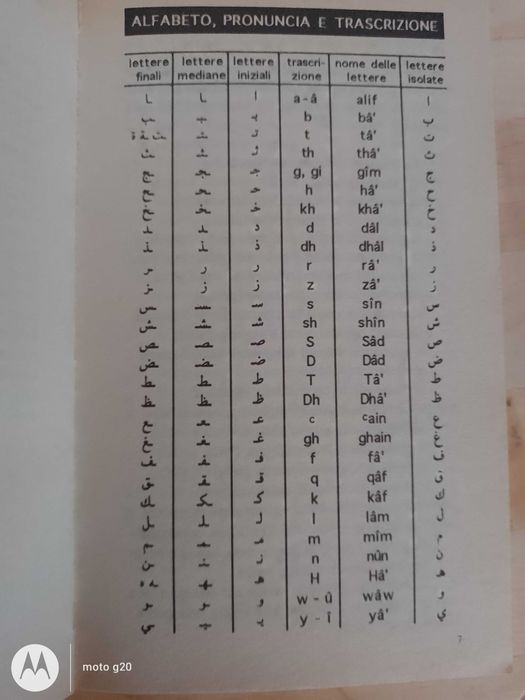 ALFABETO, PRONUNCIA E TRASCRIZIONE
lettere finali lettere mediane lettere iniziali trascri-zione nome delle lettere lettere isolate
ـا ـا ا a - â alif ا
ـب ـبـ بـ b bâ' ب
t tâ' ت
ـث ـثـ ثـ th thâ' ث
ـج ـجـ جـ g, gi gîm ج
ـح ـحـ حـ h hâ' ح
ـخ ـخـ خـ kh khâ' خ
ـد ـد د d dâl د
ـذ ـذ ذ dh dhâl ذ
ـر ـر ر r râ' ر
ـز ـز ز z zâ' ز
ـس ـسـ سـ s sîn س
ـش ـشـ شـ sh shîn ش
ـص ـصـ صـ S Sâd ص
ـض ـضـ ضـ D Dâd ض
ـط ـطـ ط T Tâ' ط
ـظ ـظـ ظ Dh Dhâ' ظ
ـع ـعـ عـ c cain ع
ـغ ـغـ غـ gh ghain غ
ـف ـفـ فـ f fâ' ف
ـق ـقـ قـ q qâf ق
ـك ـكـ كـ k kâf ك
ـل ـلـ لـ l lâm ل
ـم ـمـ مـ m mîm م
ـن ـنـ نـ n nûn ن
H Hâ'
ـو ـو و w - û wâw و
ـي ـيـ يـ y - î yâ' ي
7
moto g20